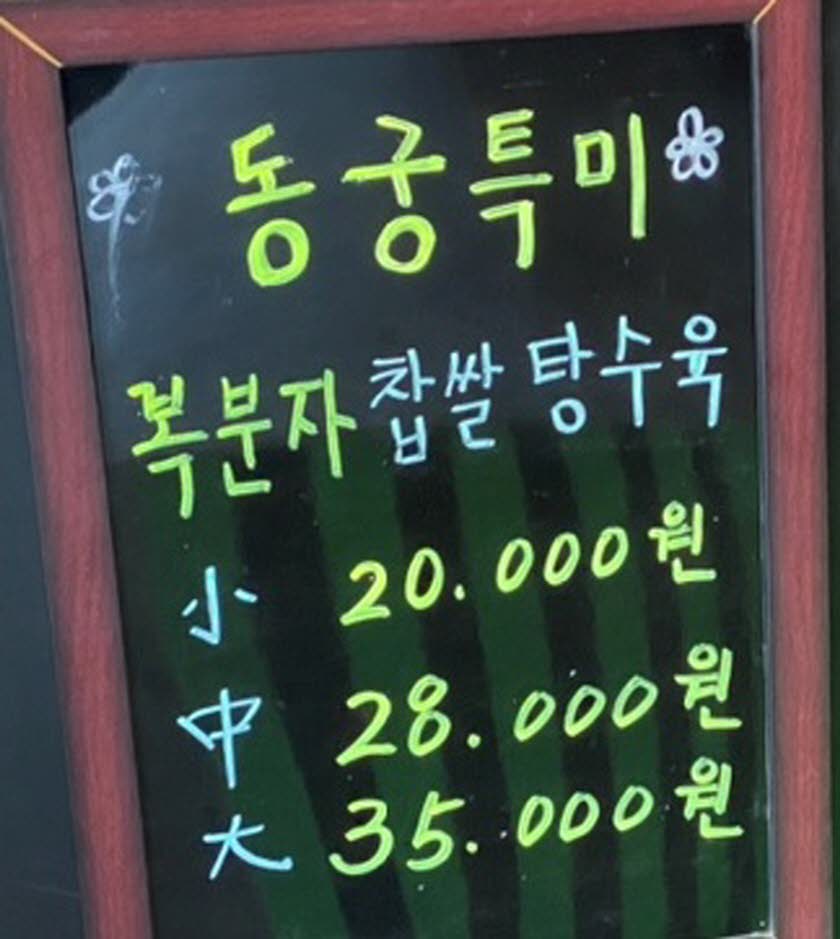 동궁특미
복분자 찹쌀 탕수육
小 20.000원
中 28.000원
大 35.000원